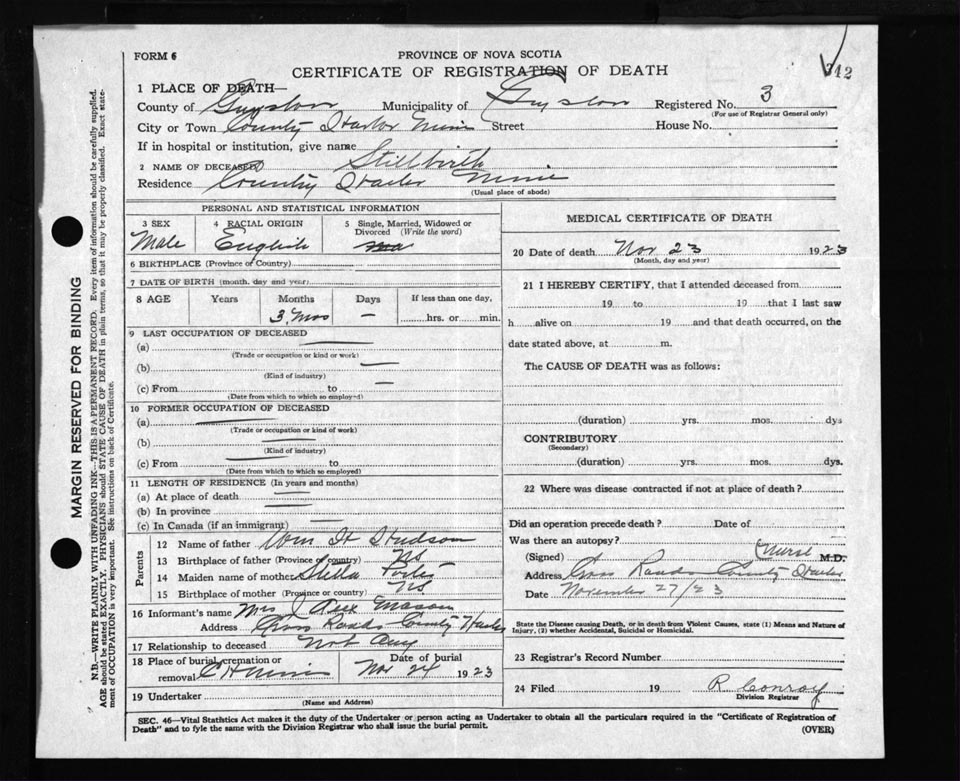 FORM 6
PROVINCE OF NOVA SCOTIA
CERTIFICATE OF REGISTRATION OF DEATH
342
1 PLACE OF DEATH—
County of Guysboro Municipality of Guysboro Registered No. 3
(For use of Registrar General only)
City or Town Country Harbor Mines Street House No.
If in hospital or institution, give name
2 NAME OF DECEASED Stillbirth
Residence Country Harbor Mines
(Usual place of abode)
PERSONAL AND STATISTICAL INFORMATION
3 SEX 4 RACIAL ORIGIN 5 Single, Married, Widowed or Divorced (Write the word)
Male English
6 BIRTHPLACE (Province or Country)
7 DATE OF BIRTH (month, day and year)
8 AGE Years Months Days If less than one day,
3 Mos — hrs. or min.
9 LAST OCCUPATION OF DECEASED
(a) —
(Trade or occupation or kind or work)
(b) —
(Kind of industry)
(c) From to —
(Date from which to which so employed)
10 FORMER OCCUPATION OF DECEASED
(a) —
(Trade or occupation or kind of work)
(b) —
(Kind of industry)
(c) From — to
(Date from which to which so employed)
11 LENGTH OF RESIDENCE (In years and months)
(a) At place of death —
(b) In province —
(c) In Canada (if an immigrant) —
Parents
12 Name of father Wm H Hudson
13 Birthplace of father (Province or country) NS
14 Maiden name of mother Stella
15 Birthplace of mother (Province or country) NS
16 Informant's name Mrs J Alex Mason
Address Cross Roads Country Harbor
17 Relationship to deceased Not Any
18 Place of burial, cremation or removal C H Mines Date of burial Nov 24 1923
19 Undertaker
(Name and Address)
MEDICAL CERTIFICATE OF DEATH
20 Date of death Nov 23 1923
(Month, day and year)
21 I HEREBY CERTIFY, that I attended deceased from
19 to 19 that I last saw
h alive on 19 and that death occurred, on the
date stated above, at m.
The CAUSE OF DEATH was as follows:
(duration) yrs. mos. dys
CONTRIBUTORY
(Secondary)
(duration) yrs. mos. dys.
22 Where was disease contracted if not at place of death?
Did an operation precede death? Date of
Was there an autopsy?
(Signed) (Nurse M.D.
Address Cross Roads Country Harbor
Date November 27/23
State the Disease causing Death, or in death from Violent Causes, state (1) Means and Nature of
Injury, (2) whether Accidental, Suicidal or Homicidal.
23 Registrar's Record Number
24 Filed 19 R Conroy
Division Registrar
SEC. 46—Vital Statistics Act makes it the duty of the Undertaker or person acting as Undertaker to obtain all the particulars required in the "Certificate of Registration of
Death" and to fyle the same with the Division Registrar who shall issue the burial permit.
(OVER)
MARGIN RESERVED FOR BINDING
N.B.—WRITE PLAINLY WITH UNFADING INK—THIS IS A PERMANENT RECORD. Every item of information should be carefully supplied.
AGE should be stated EXACTLY. PHYSICIANS should STATE CAUSE OF DEATH in plain terms, so that it may be properly classified. Exact state-
ment of OCCUPATION is very important. See instructions on back of Certificate.